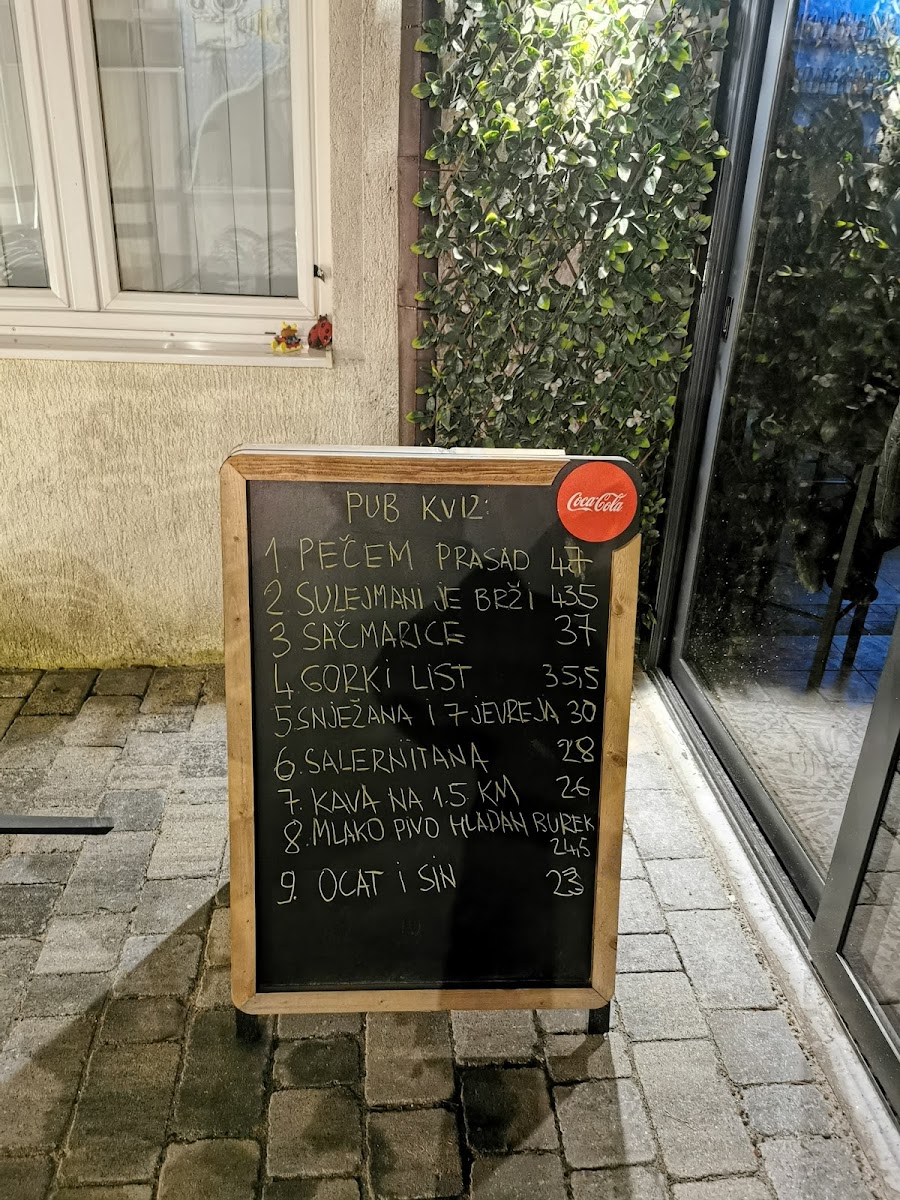 PUB KVIZ:
Coca-Cola
1 PEČEM PRASAD 47
2. SULEJMANI JE BRŽI 43,5
3 SAČMARICE 37
4. GORKI LIST 35,5
5. SNJEŽANA I 7 JEVREJA 30
6. SALERNITANA 28
7. KAVA NA 1.5 KM 26
8. MLAKO PIVO HLADAN BUREK
24,5
9. OCAT I SIN 23